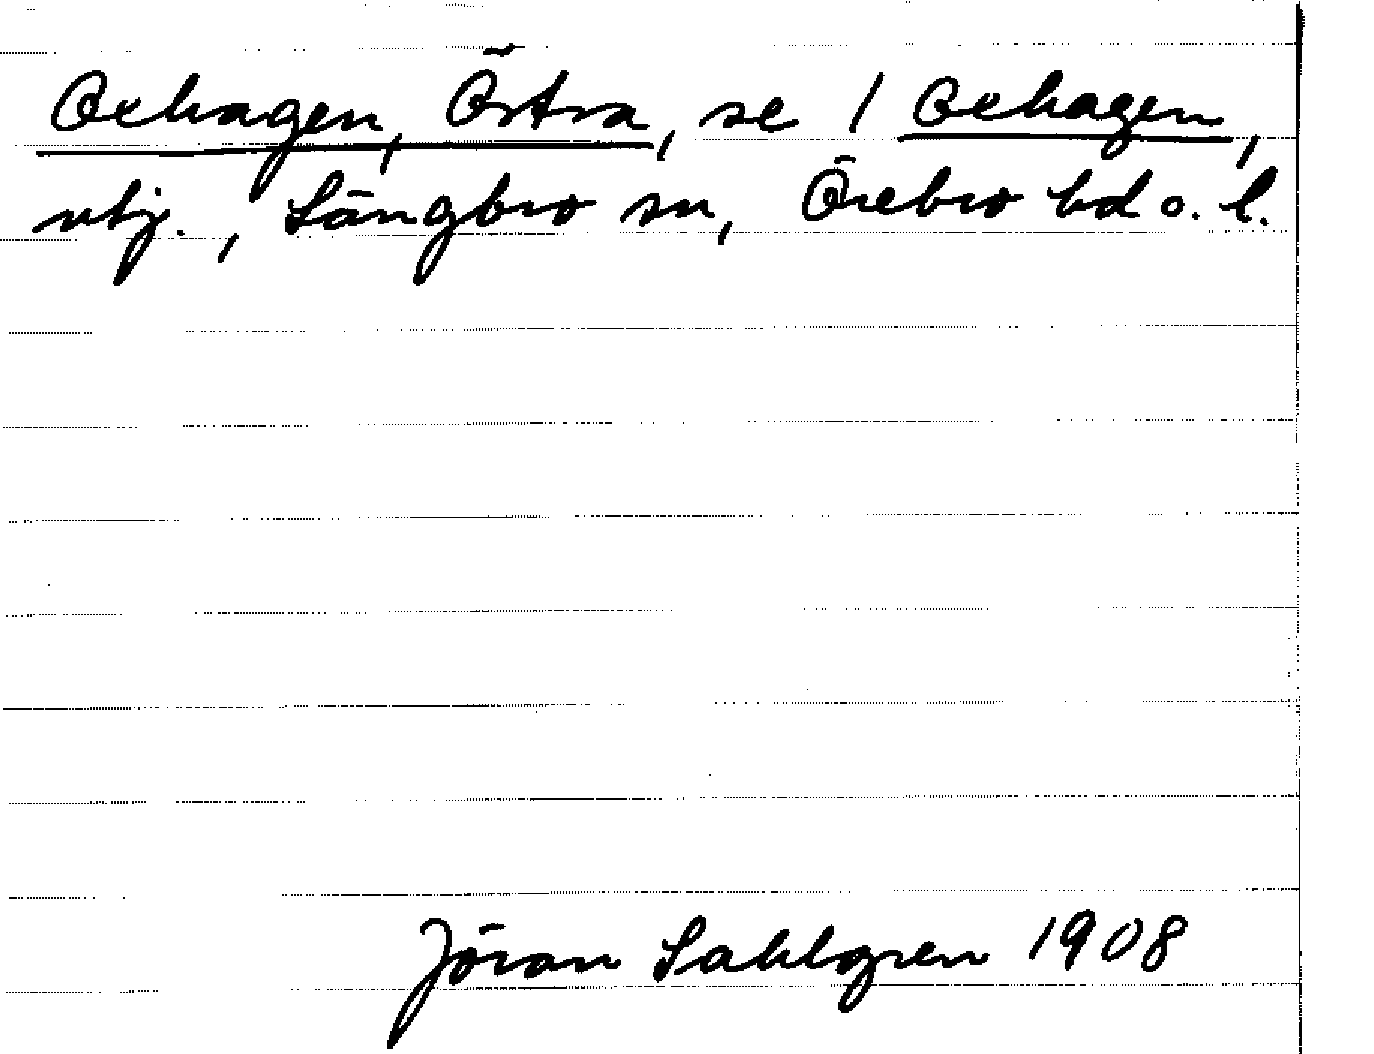 Oxhagen, Östra, se 1 Oxhagen,
vbj., Längbro sn, Örebro hd o. l.
Jöran Sahlgren 1908